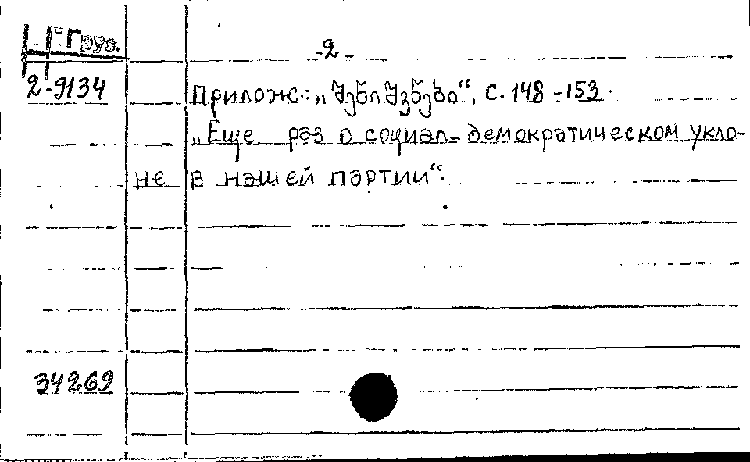 Ц-Груз.
-2-
2-9134
Прилож.: „შენიშვნები“, С. 148-153.
„Еще раз о социал-демократическом укло-
не в нашей партии“.
34269